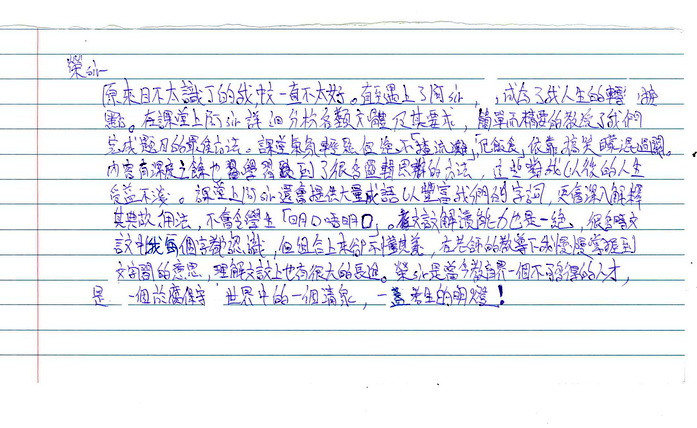 榮sir
原來目不太識丁的我,中文一直不太好。直至遇上了阿sir, ,成為了我人生的轉捩
點。在課堂上阿sir詳細分析各類文體及其要求,簡單而精要的教授了我們
完成題目的最佳方法。課堂氣氛輕鬆但絕不「 流 」,依靠搞笑矇混過關。
內容有深度之餘也學習到了很多邏輯思維的方法,這些對我以後的人生
受益不淺。課堂上阿sir還會提供大量成語以豐富我們的字詞,更會深入解釋
其典故、用法,不會令學生「明口唔明口」。文言文解讀能力也是一絕,很多時文
言文中我每個字都認識,但組合上來卻不懂其意,在老師的教導下我慢慢掌握到
文字間的意思,理解文言文上也有很大的長進。榮sir是當今教育界一個不可多得的人才,
是 一個於腐保守 世界中的一個清泉,一盞考生的明燈!